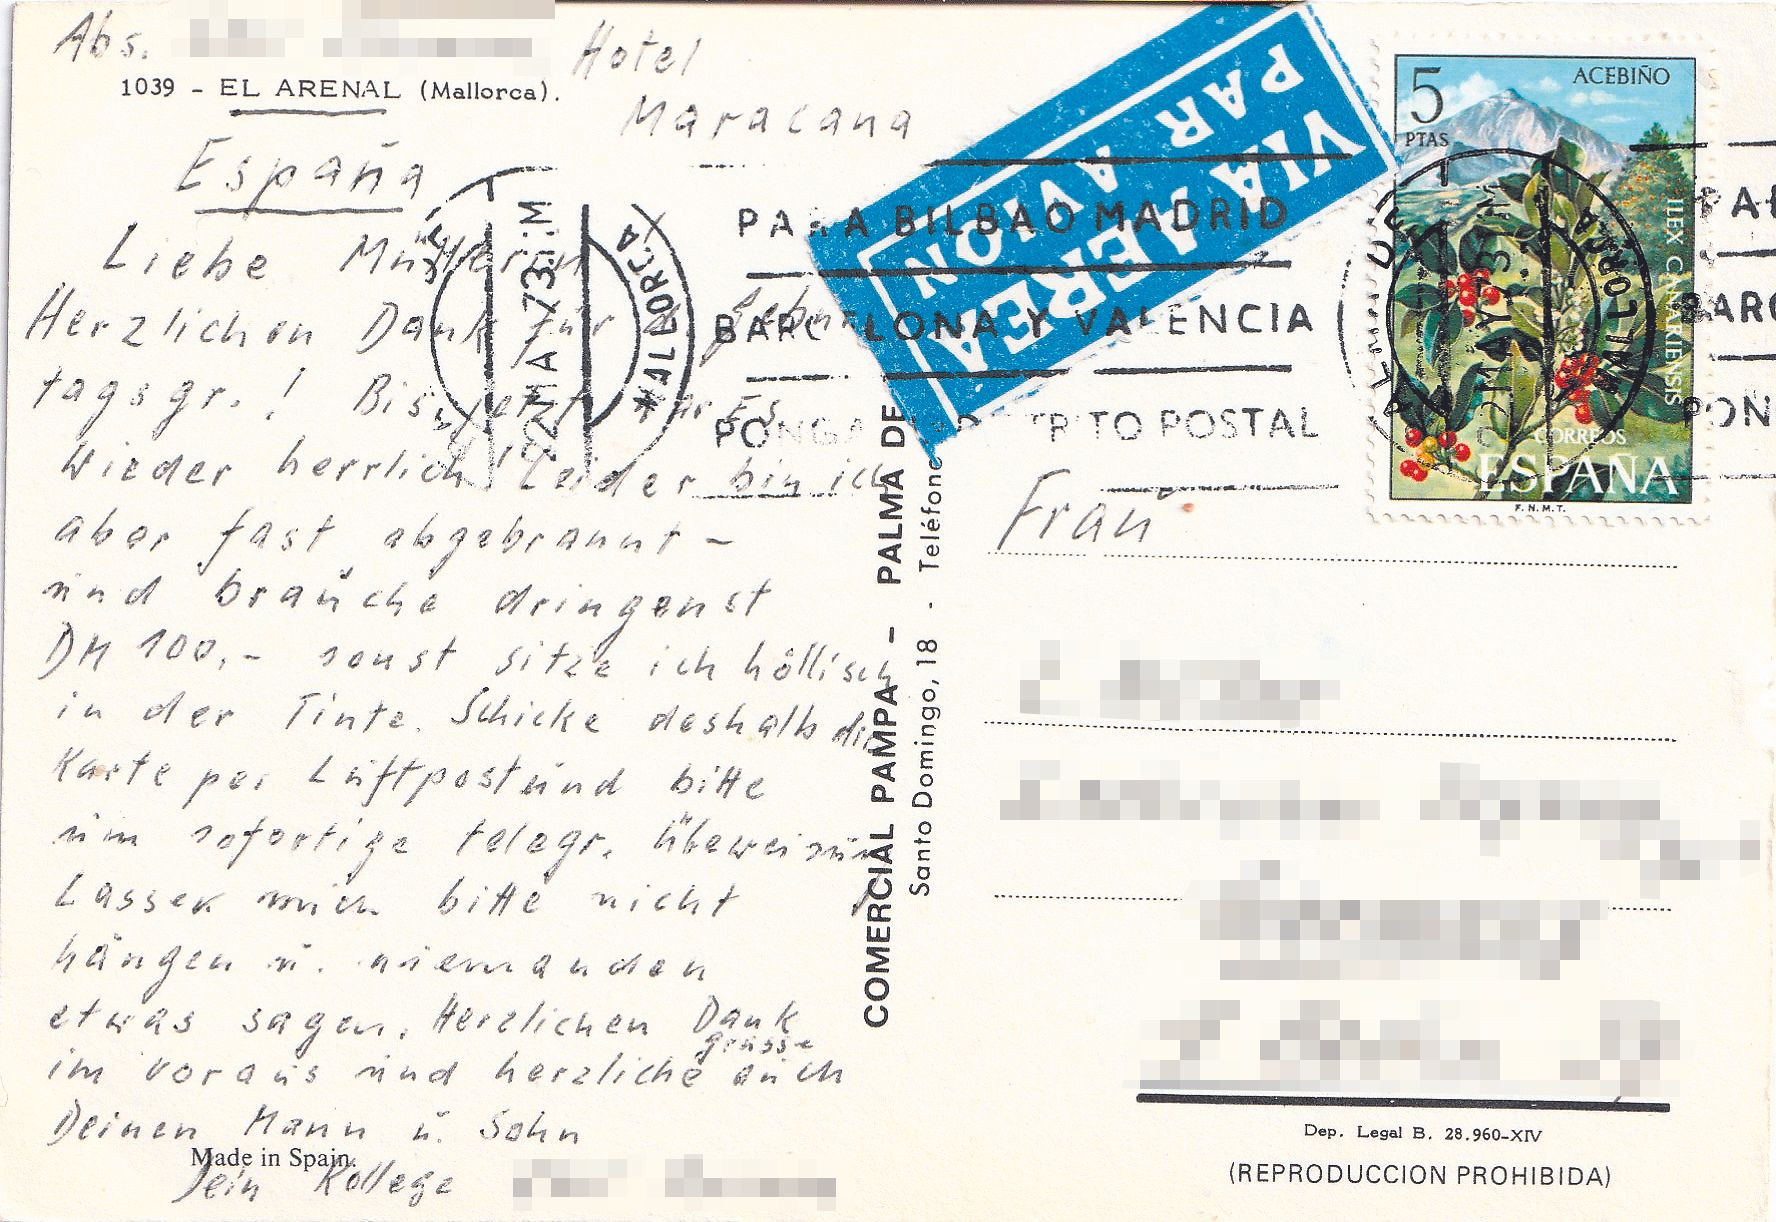 Abs.
Hotel
Maracana
1039 - EL ARENAL (Mallorca).
España
Liebe Müllerin
Herzlichen Dank für
tagsgr.! Bis jetzt war Es
wieder herrlich! Leider bin ich
aber fast abgebrannt -
und brauche dringenst
DM 100,- sonst sitze ich höllisch
in der Tinte. Schicke deshalb die
Karte per Luftpost und bitte
um sofortige telegr. Übeweisung
Lassen mich bitte nicht
hängen u. niemanden
etwas sagen. Herzlichen Dank
im voraus und herzliche grüsse auch
Deinen Mann u. Sohn
Made in Spain.
Dein Kollege
COMERCIAL PAMPA - PALMA DE
Santo Domingo, 18 - Teléfono
VIA AEREA
PAR AVION
PARA BILBAO MADRID
BARCELONA Y VALENCIA
PONGA DISTRITO POSTAL
MALLORCA
5
PTAS
ACEBIÑO
ILEX CANARIENSIS
CORREOS
ESPAÑA
F.N.M.T.
MALLORCA
BARC
PON
Frau
Dep. Legal B. 28.960-XIV
(REPRODUCCION PROHIBIDA)